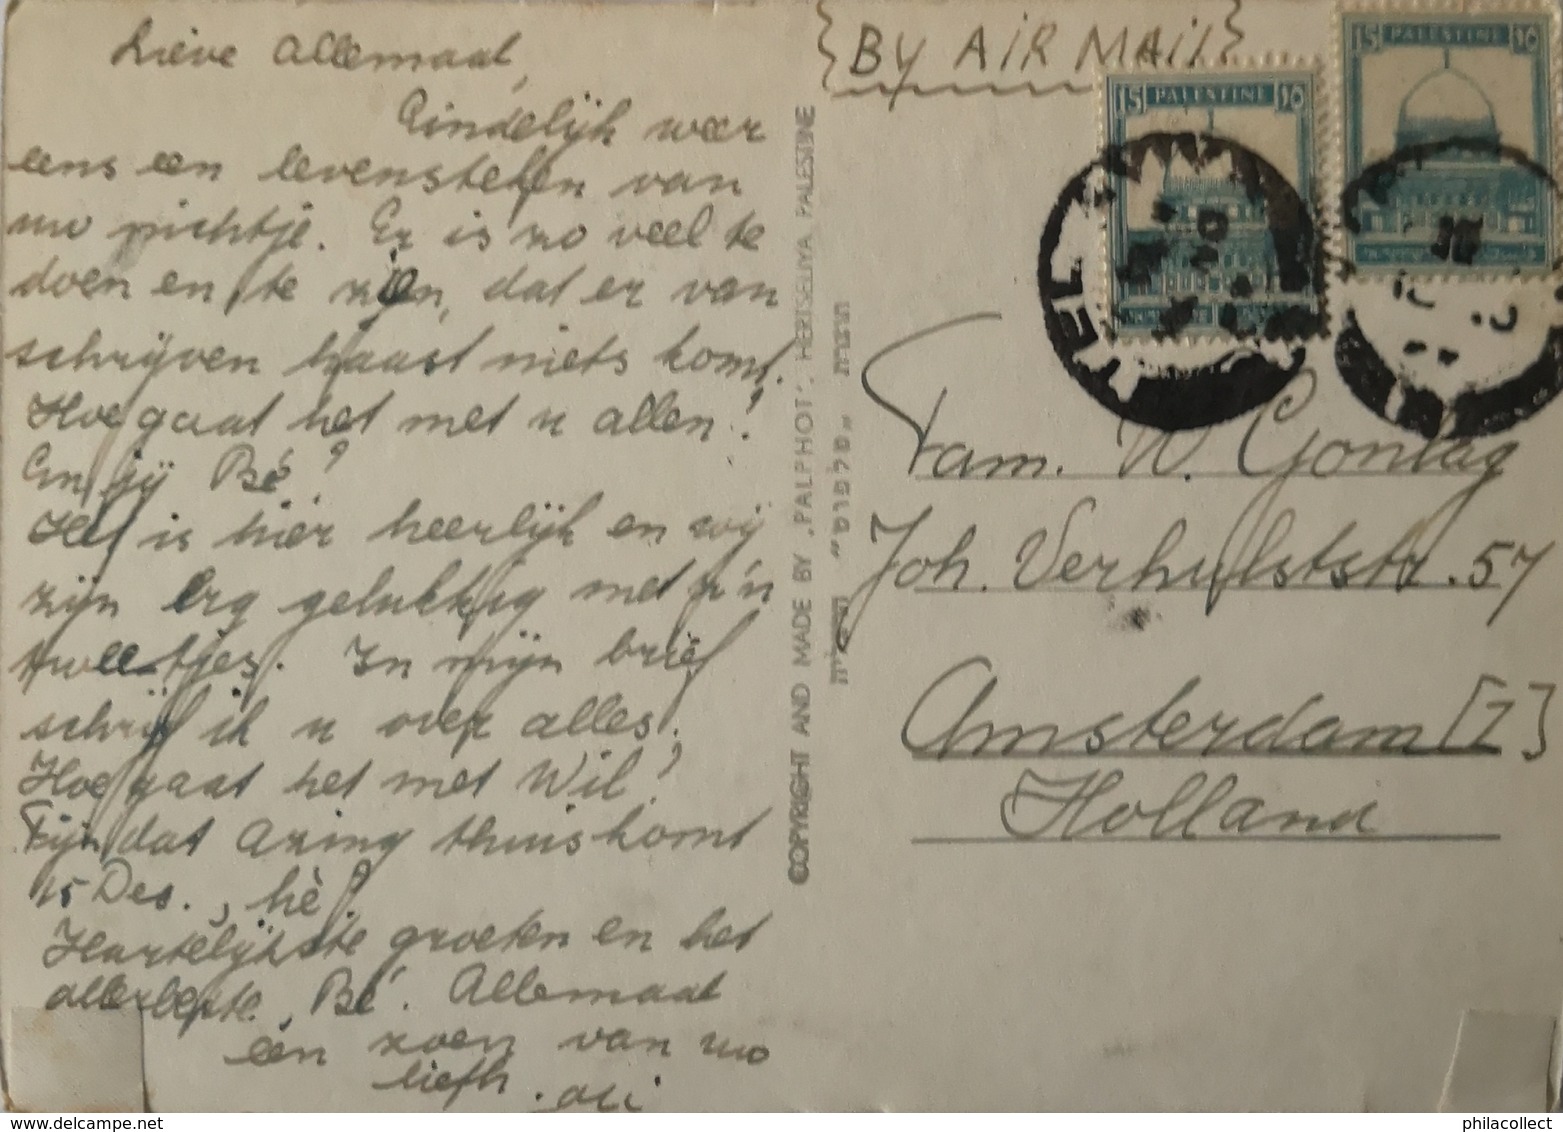 Lieve Allemaal,
Eindelijk weer
eens een levensteken van
uw nichtje. Er is zo veel te
doen en te zien, dat er van
schrijven haast niets komt.
Hoe gaat het met u allen?
En jij Bé?
Het is hier heerlijk en wij
zijn erg gelukkig met z'n
tweetjes. In mijn brief
schrijf ik u over alles.
Hoe gaat het met Wil?
Fijn dat thuis komt
15 Des., hè?
Hartelijkste groeten en het
allerbeste, Bé. Allemaal
één zoen van uw
liefh.
COPYRIGHT AND MADE BY „PALPHOT", HERTSELIYA PALESTINE
תוצרת „פלפוט" הרצליה
{BY AIR MAIL}
15 PALESTINE ١٥
15 PALESTINE ١٥
TEL AVIV
Fam. W. Gontag
Joh. Verhulststr. 57
Amsterdam [Z]
Holland
philacollect